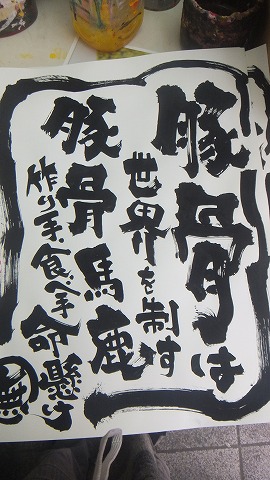 豚骨は
世界を制す
豚骨馬鹿
作り手、食べ手命懸け
無